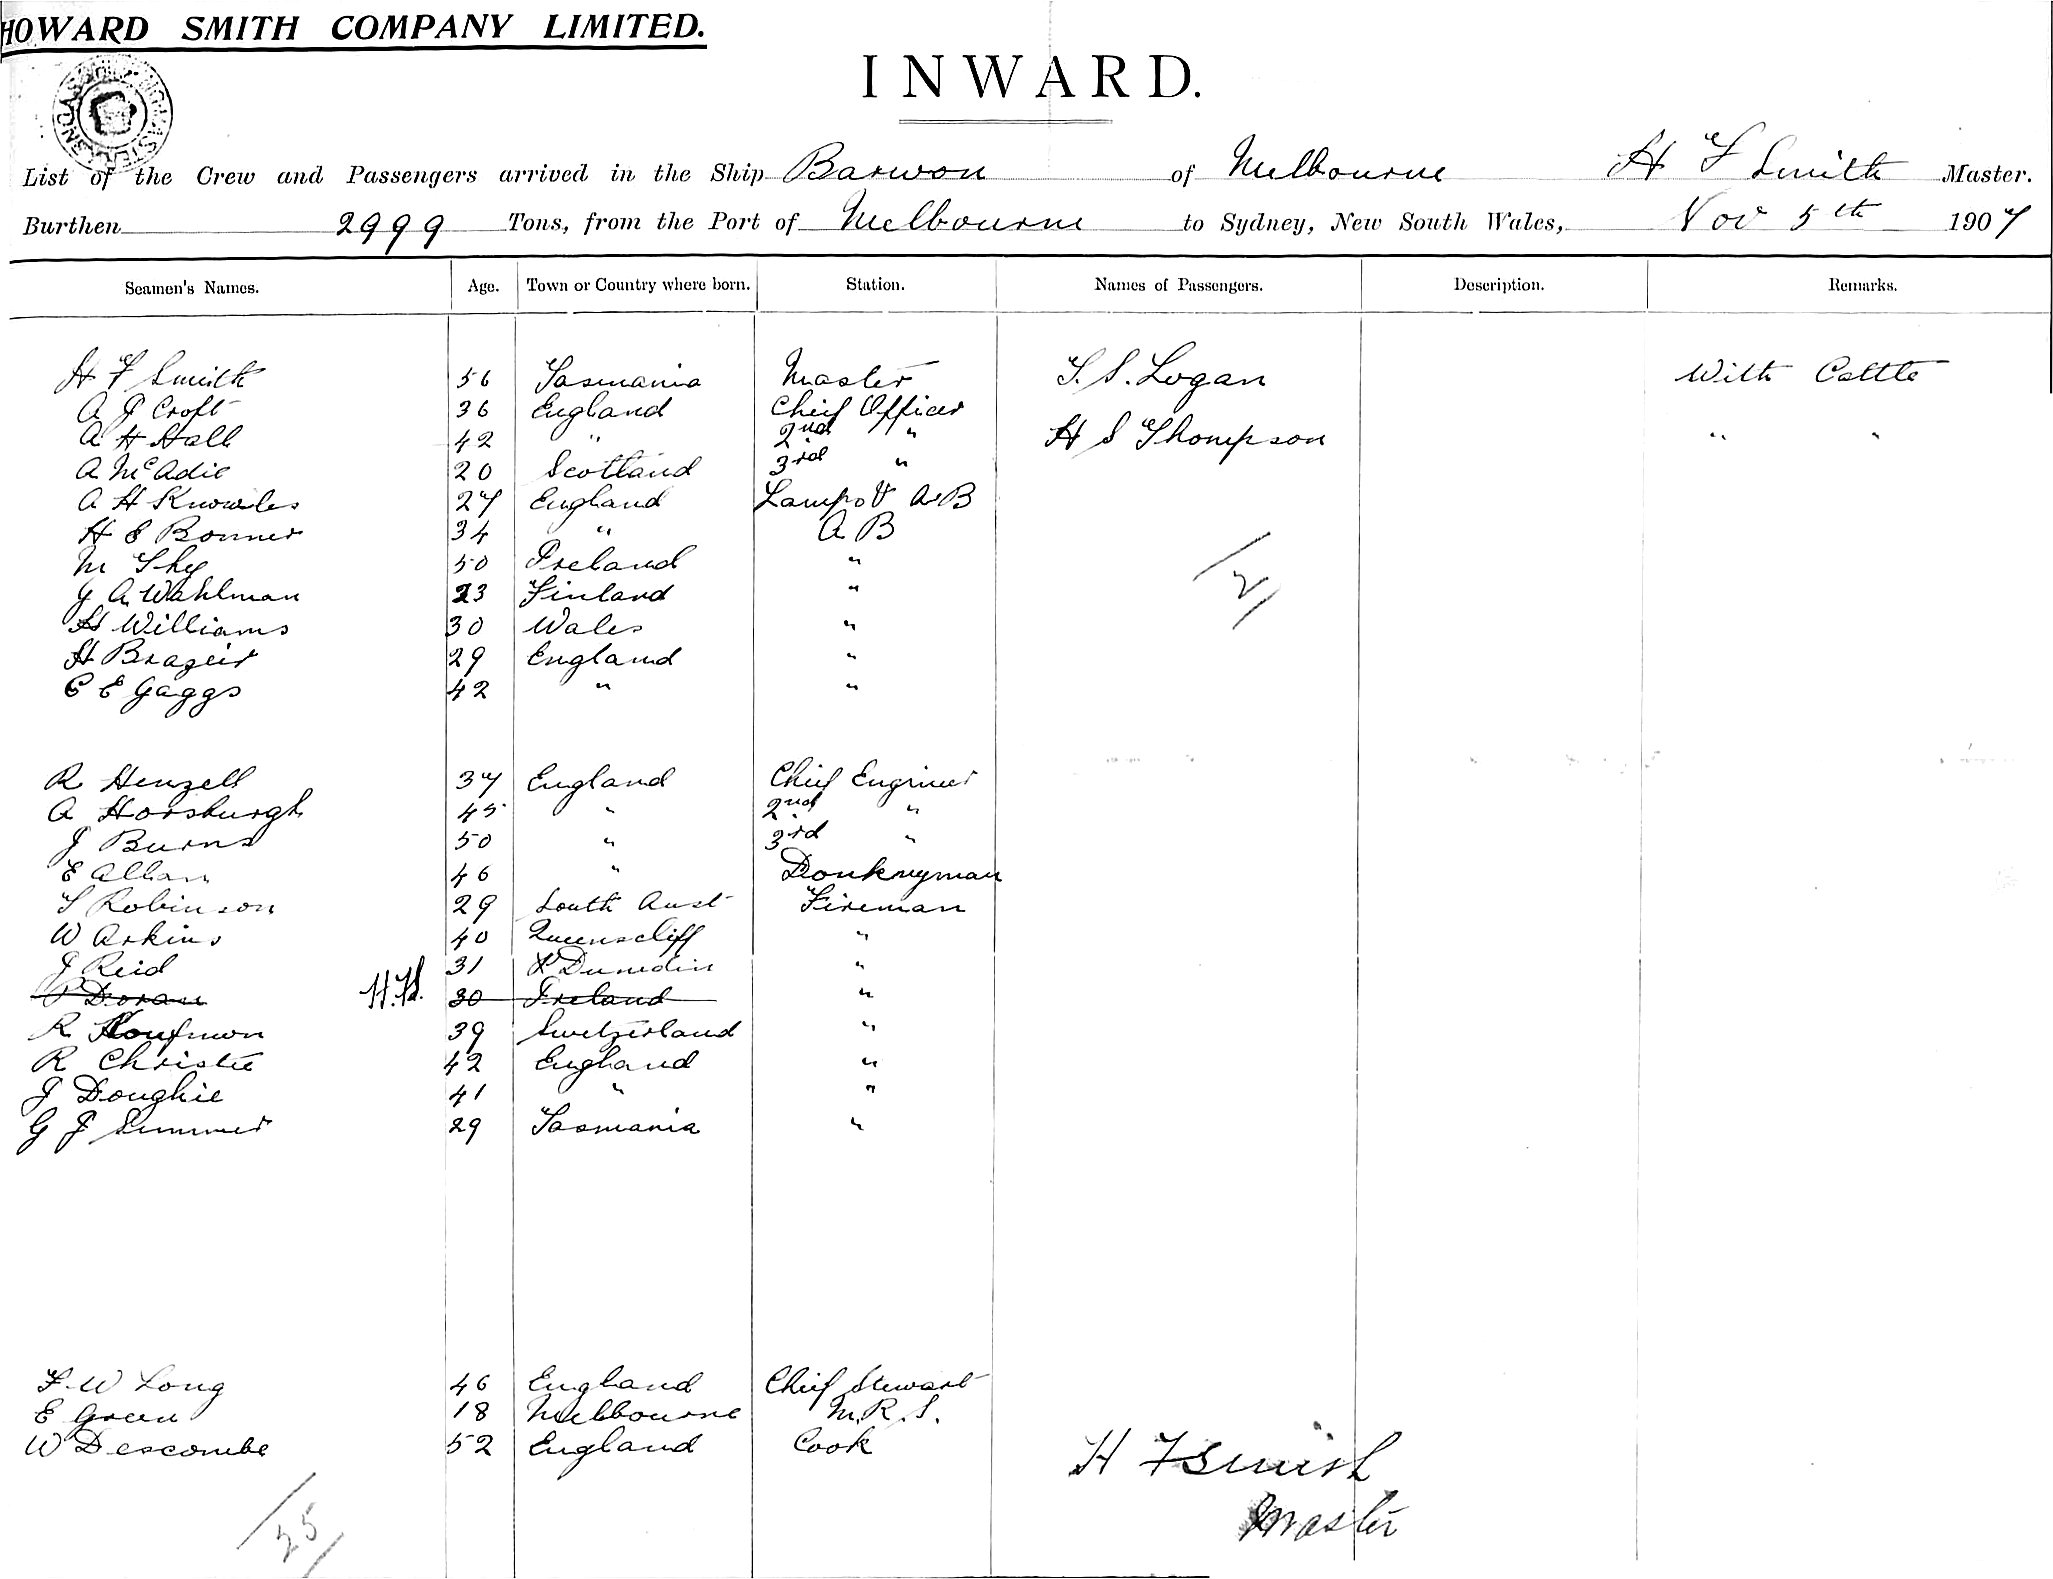 HOWARD SMITH COMPANY LIMITED.
INWARD.
List of the Crew and Passengers arrived in the Ship Barwon of Melbourne H F Smith Master.
Burthen 2999 Tons, from the Port of Melbourne to Sydney, New South Wales, Nov 5th 1907
Seamen's Names. Age. Town or Country where born. Station. Names of Passengers. Description. Remarks.
H F Smith 56 Tasmania Master T. S. Logan With Cattle
A J Croft 36 England Chief Officer
A H Hall 42 " 2nd " H S Thompson " "
A McAdie 20 Scotland 3rd "
A H Knowles 27 England Lamps & AB
H E Bonner 34 " A B
M Shy 50 Ireland "
J A Wahlman 23 Finland "
H Williams 30 Wales "
H Brazeir 29 England "
2
C E Gaggs 42 " "
R Henzell 37 England Chief Engineer
A Horsburgh 45 " 2nd "
J Burns 50 " 3rd "
E Allan 46 " Donkeyman
S Robinson 29 South Aust Fireman
W Arkins 40 Queenscliff "
J Reid 31 Dunedin "
P Doran H.H. 30 Ireland "
R Koufmon 39 Swetzerland "
R Christie 42 England "
J Doughie 41 " "
G J Summer 29 Tasmania "
F. W Long 46 England Chief Stewart
E Green 18 Melbourne M. R. S.
W Descombe 52 England Cook
H F Smith
Master
25